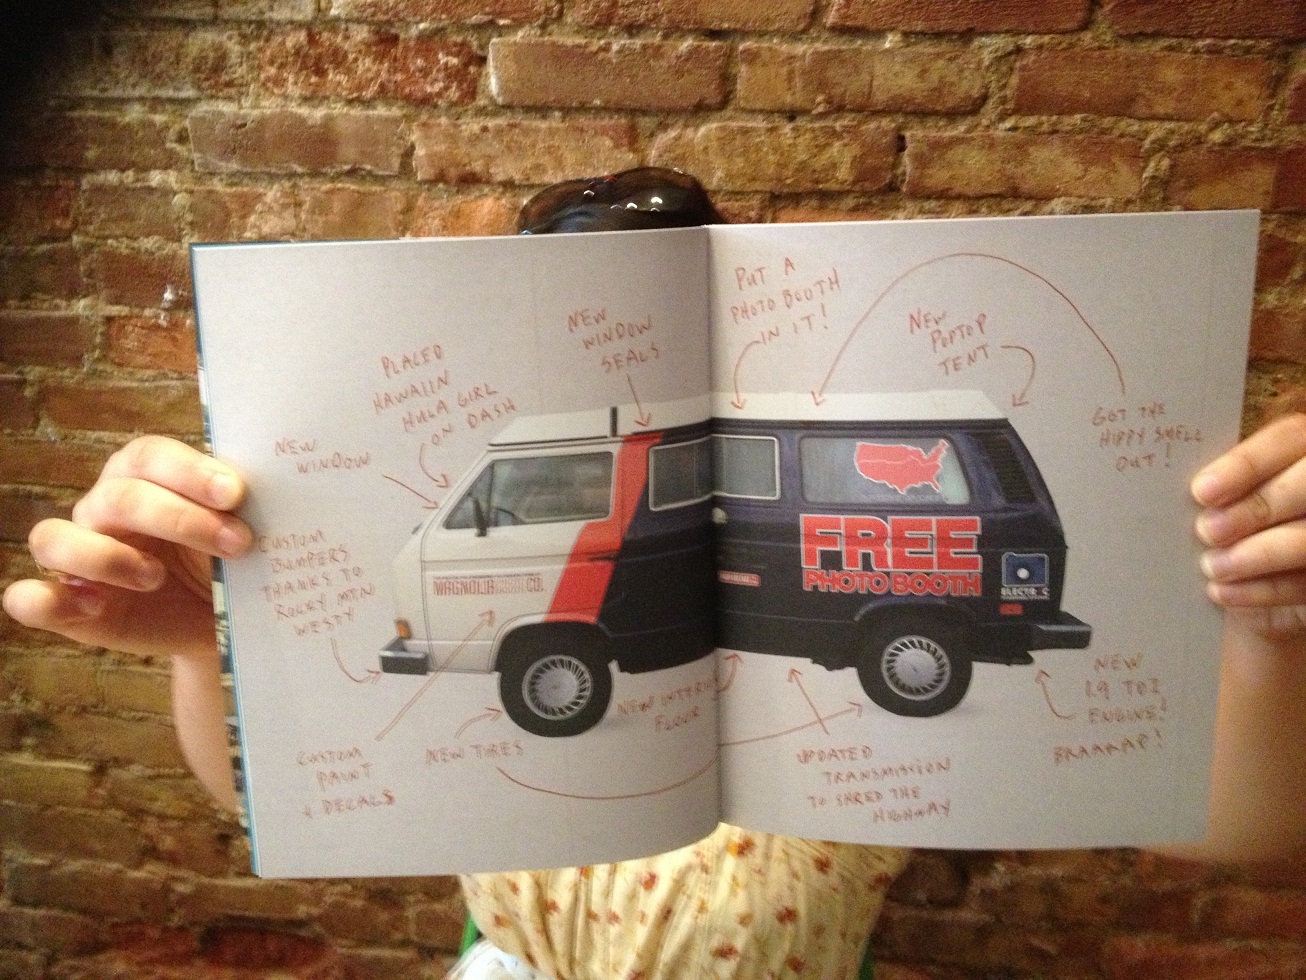 NEW
WINDOW
PLACED
HAWAIIN
HULA GIRL
ON DASH
NEW
WINDOW
SEALS
PUT A
PHOTO BOOTH
IN IT!
NEW
POPTOP
TENT
GOT THE
HIPPY SMELL
OUT!
CUSTOM
BUMPERS
THANKS TO
ROCKY MTN
WESTY
MAGNOLIA CO.
FREE
PHOTO BOOTH
CUSTOM
PAINT
+ DECALS
NEW TIRES
NEW INTERIOR
FLOOR
UPDATED
TRANSMISSION
TO SHRED THE
HIGHWAY
NEW
1.9 TDI
ENGINE!
BRAAAAP!